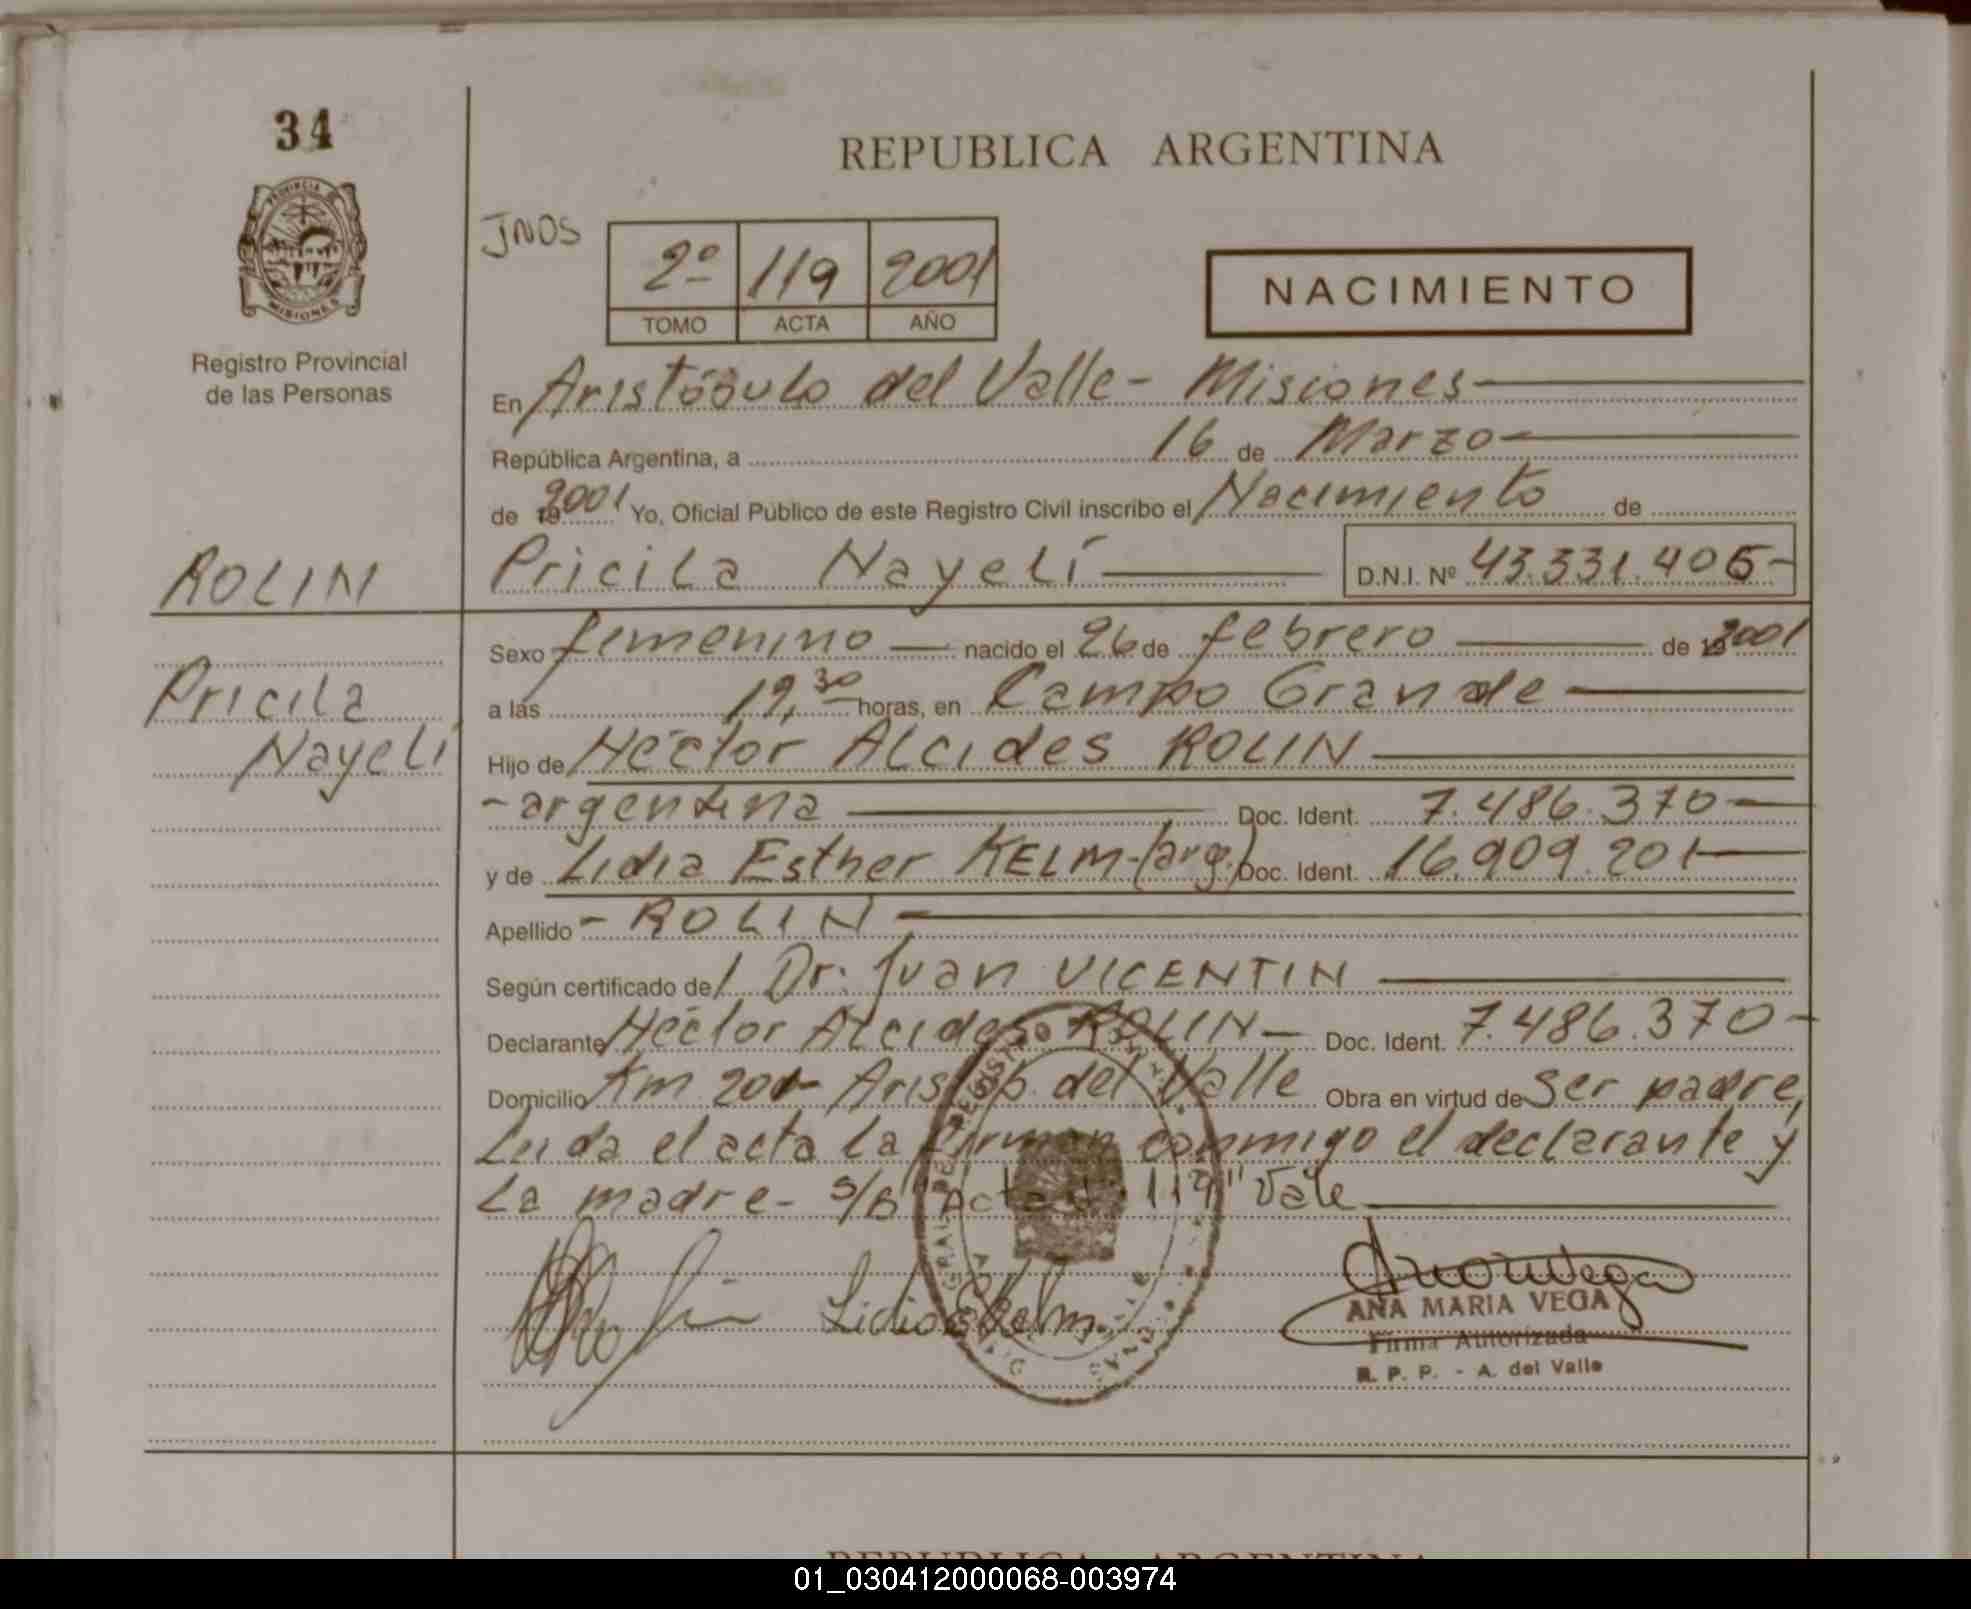 34
REPUBLICA ARGENTINA
PROVINCIA
MISIONES
JNOS
2º 119 2001
TOMO ACTA AÑO
NACIMIENTO
Registro Provincial
de las Personas
En Aristóbulo del Valle - Misiones
República Argentina, a 16 de Marzo
de 192001 Yo, Oficial Público de este Registro Civil inscribo el Nacimiento de
ROLIN
Pricila Nayelí D.N.I. Nº 43.331.405-
Sexo femenino nacido el 26 de febrero de 192001
Pricila
Nayelí
a las 12,30 horas, en Campo Grande
Hijo de Héctor Alcides ROLIN
- argentina Doc. Ident. 7.486.370-
y de Lidia Esther KELM-(arg.) Doc. Ident. 16.909.201-
Apellido - ROLIN -
Según certificado de / Dr: Juan VICENTIN
Declarante Héctor Alcides ROLIN- Doc. Ident. 7.486.370-
Domicilio Km 201- Aristób. del Valle Obra en virtud de ser padre,
Leida el acta la firman conmigo el declarante y
la madre- s/b "Acta 119" Vale
Lidia E Kelm
ANA MARIA VEGA
Firma Autorizada
R. P. P. - A. del Valle
REPUBLICA ARGENTINA
01_030412000068-003974